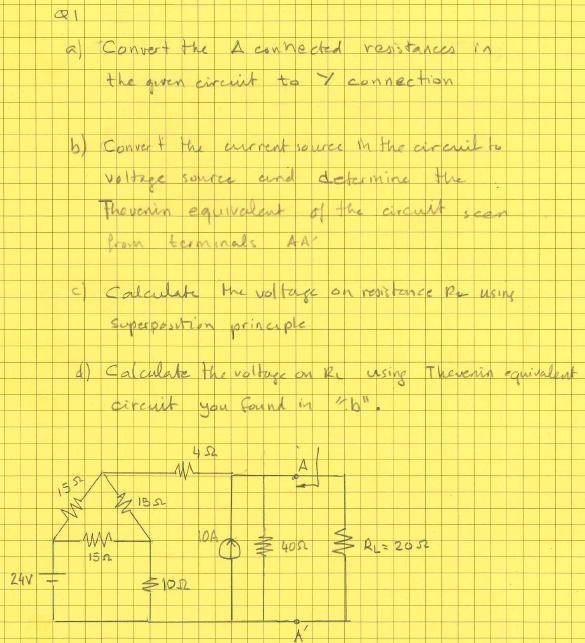 Q1
a) Convert the Δ connected resistances in
the given circuit to Y connection
b) Convert the current source in the circuit to
voltage source and determine the
Thevenin equivalent of the circuit seen
from terminals AA'
c) Calculate the voltage on resistance RL using
superposition principle
d) Calculate the voltage on RL using Thevenin equivalent
circuit you found in "b".
4Ω
A
15Ω
15Ω
10A
40Ω
RL = 20Ω
15Ω
24V
10Ω
A'